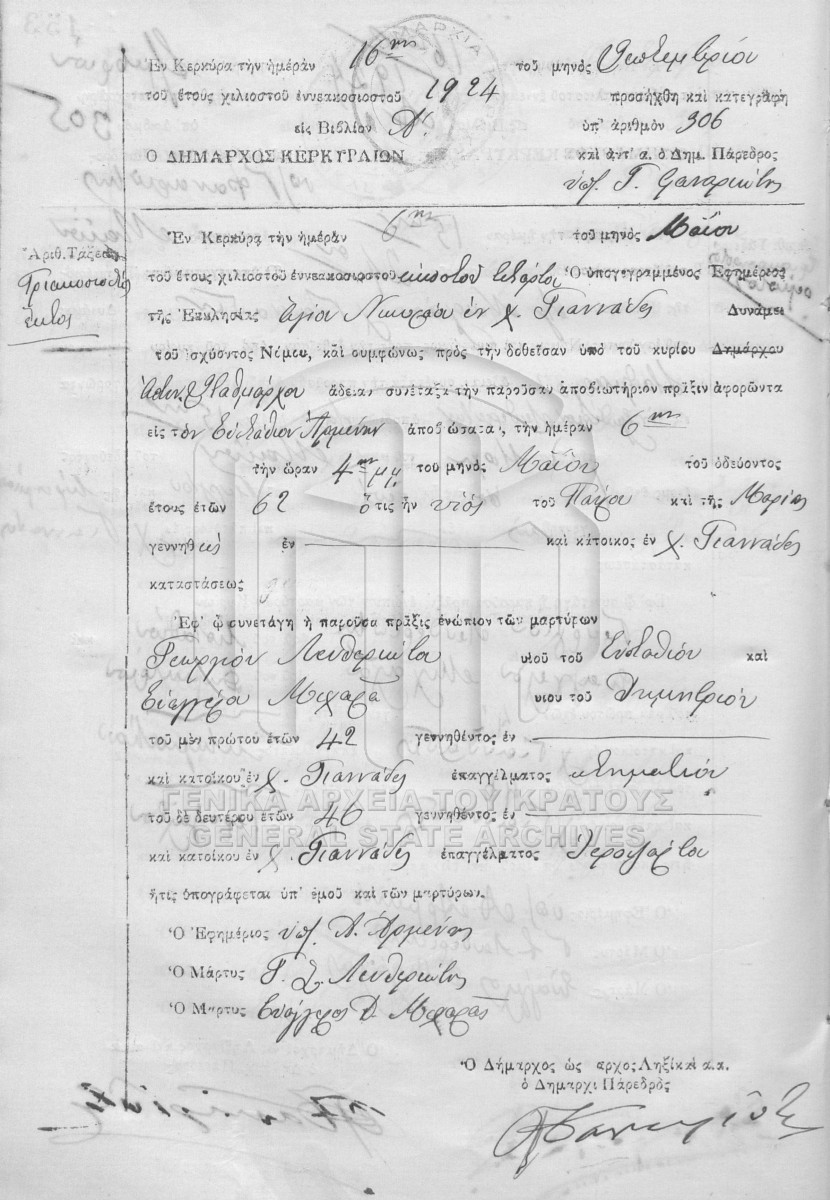 Ἐν Κερκύρα τὴν ἡμέραν 16ην τοῦ μηνὸς Σεπτεμβρίου
τοῦ ἔτους χιλιοστοῦ ἐννεακοσιοστοῦ 1924 προσήχθη καὶ κατεγράφη
εἰς Βιβλίον Α' ὑπ' ἀριθμὸν 306
Ο ΔΗΜΑΡΧΟΣ ΚΕΡΚΥΡΑΙΩΝ καὶ ἀντ' α. ὁ Δημ. Πάρεδρος
Ἐν Κερκύρα τὴν ἡμέραν 6ην τοῦ μηνὸς Μαΐου
Ἀριθ. Τάξεως
τοῦ ἔτους χιλιοστοῦ ἐννεακοσιοστοῦ εἰκοστοῦ τετάρτου Ὁ ὑπογεγραμμένος Ἐφημέριος
Τριακοσιοστὸς
ἕκτος
τῆς Ἐκκλησίας Ἁγίου Νικολάου ἐν χ. Γιαννάδες Δυνάμει
τοῦ ἰσχύοντος Νόμου, καὶ συμφώνως πρὸς τὴν δοθεῖσαν ὑπὸ τοῦ κυρίου Δημάρχου
Ἀστυν. Σταθμάρχου ἄδειαν συνέταξα τὴν παροῦσαν ἀποβιωτήριον πρᾶξιν ἀφορῶντα
εἰς τὸν Εὐστάθιον Ἀρμένην ἀποβιώσαντα, τὴν ἡμέραν 6ην
τὴν ὥραν 4ην μμ τοῦ μηνὸς Μαΐου τοῦ ὁδεύοντος
ἔτους ἐτῶν 62 ὅστις ἦν υἱὸς τοῦ Πέτρου καὶ τῆς Μαρίας
γεννηθεὶς ἐν καὶ κάτοικος ἐν χ. Γιαννάδες
καταστάσεως
Ἐφ' ᾧ συνετάγη ἡ παροῦσα πρᾶξις ἐνώπιον τῶν μαρτύρων
Γεωργίου Λευθεριώτου υἱοῦ τοῦ Εὐσταθίου καὶ
Εὐαγγέλου Μιχαλᾶ υἱοῦ τοῦ Δημητρίου
τοῦ μὲν πρώτου ἐτῶν 42 γεννηθέντος ἐν
καὶ κατοίκου ἐν χ. Γιαννάδες ἐπαγγέλματος κτηματίου
ΓΕΝΙΚΑ ΑΡΧΕΙΑ ΤΟΥ ΚΡΑΤΟΥΣ
τοῦ δὲ δευτέρου ἐτῶν 46 γεννηθέντος ἐν
GENERAL STATE ARCHIVES
καὶ κατοίκου ἐν χ. Γιαννάδες ἐπαγγέλματος Ἱεροψάλτου
ἥτις ὑπογράφεται ὑπ' ἐμοῦ καὶ τῶν μαρτύρων.
Ὁ Ἐφημέριος Ἀρμένης
Ὁ Μάρτυς Γ. Σ. Λευθεριώτης
Ὁ Μάρτυς Εὐάγγελος Δ. Μιχαλᾶς
Ὁ Δήμαρχος ὡς ἀρχος Ληξικαὶ α.α.
ὁ Δημαρχι Πάρεδρὸς